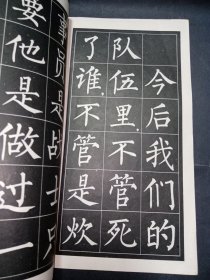 今后我们的
队伍里，不管死
了谁，不管是炊
事员，是战士，只
要他是做过一